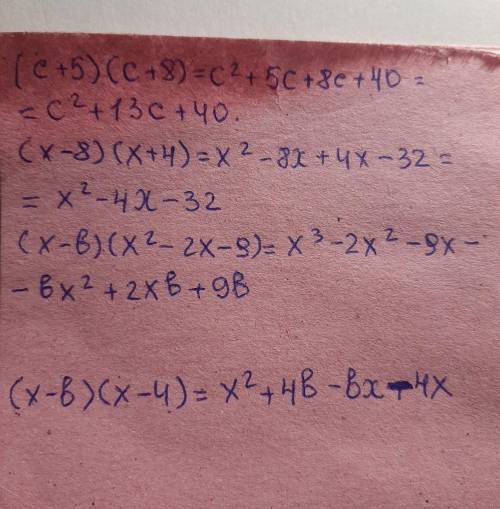 (c+5)(c+8)=c²+5c+8c+40=
=c²+13c+40.
(x-8)(x+4)=x²-8x+4x-32=
=x²-4x-32
(x-в)(x²-2x-9)=x³-2x²-9x-
-вx²+2xв+9в
(x-в)(x-4)=x²+4в-вx-4x